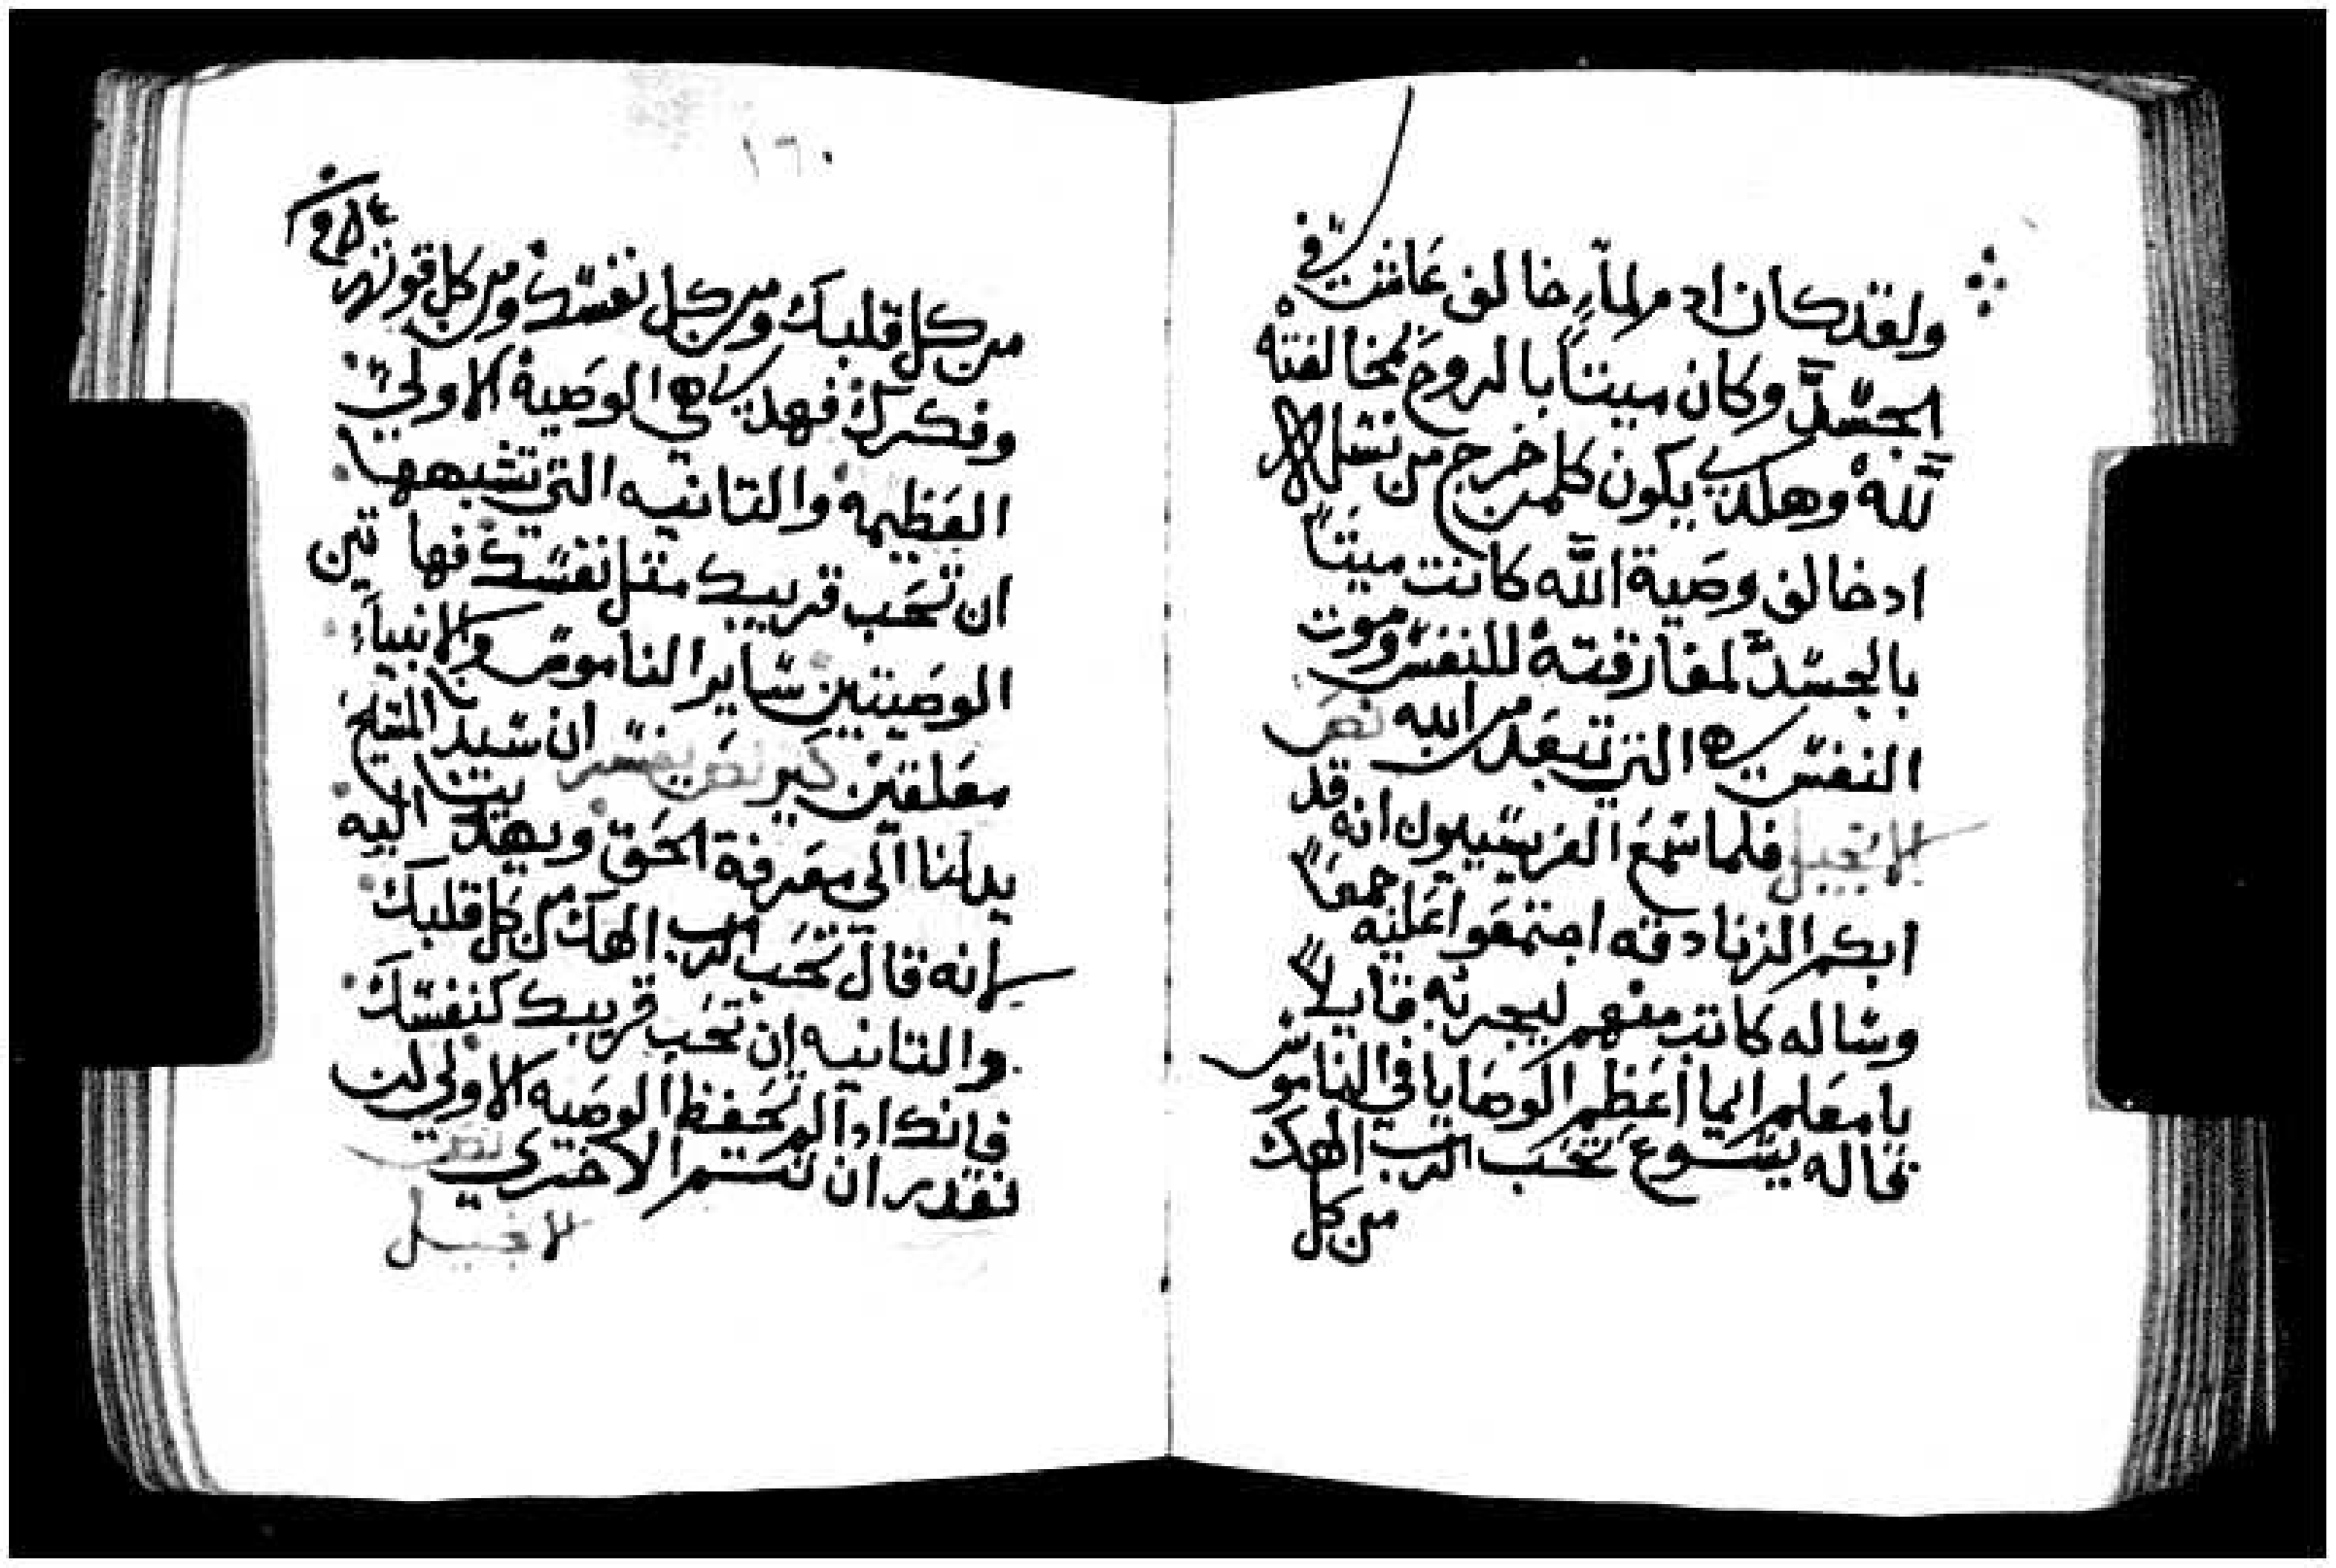 ولقد كان ادم لما خالف عاشت في
الجسد وكان ميتاً بالروح بمخالفته
لله وهكدي يكون كلمن خرج من نسل
ادخالف وصية الله كانت ميتاً
بالجسد لمفارقته للنفس وموت
النفس هي التي تبعد من الله نص
الانجيل فلما سمع الفريسيون انه قد
ابكم الزنادقه اجتمعوا عليه جمعاً
وساله كاتب منهم ليجربه قايلاً
يا معلم ايما اعظم الوصايا في الناموس
قاله يسوع تحب الرب الهك
من كل
١٦٠
من كل قلبك ومن كل نفسك ومن كل قوتك
وفكرك فهدي هي الوصية الاولي
العظيمة والتانيه التي تشبهها
ان تحب قريبك متل نفسك فها تين
الوصيتين ساير الناموس والانبياء
معلقين نص يفسر ان سيدنا المسيح
يدلنا الي معرفة الحق ويهدينا اليه
لانه قال تحب الرب الهك من كل قلبك
والتانيه ان تحب قريبك كنفسك
فانك ادا لم تحفظ الوصيه الاولي لن
تقدر ان تتم الاخري نص
الانجيل